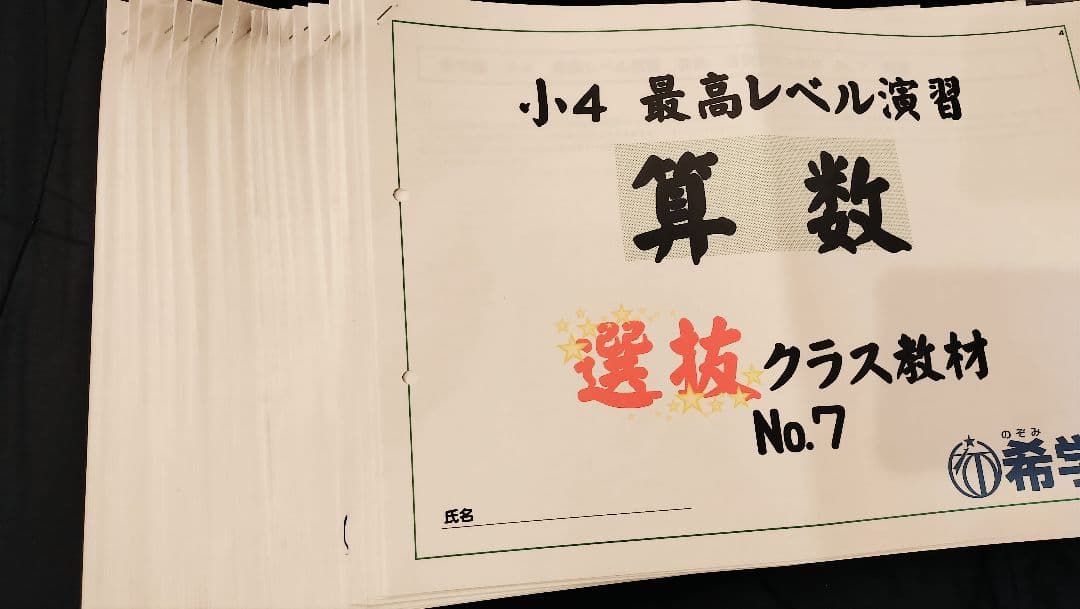 4
小4 最高レベル演習
算数
選抜クラス教材
No.7
のぞみ
希学
氏名